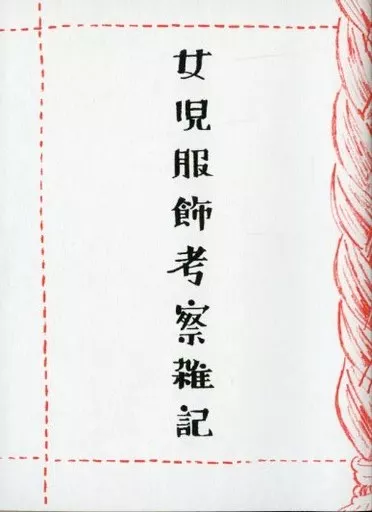 女児服飾考察雑記